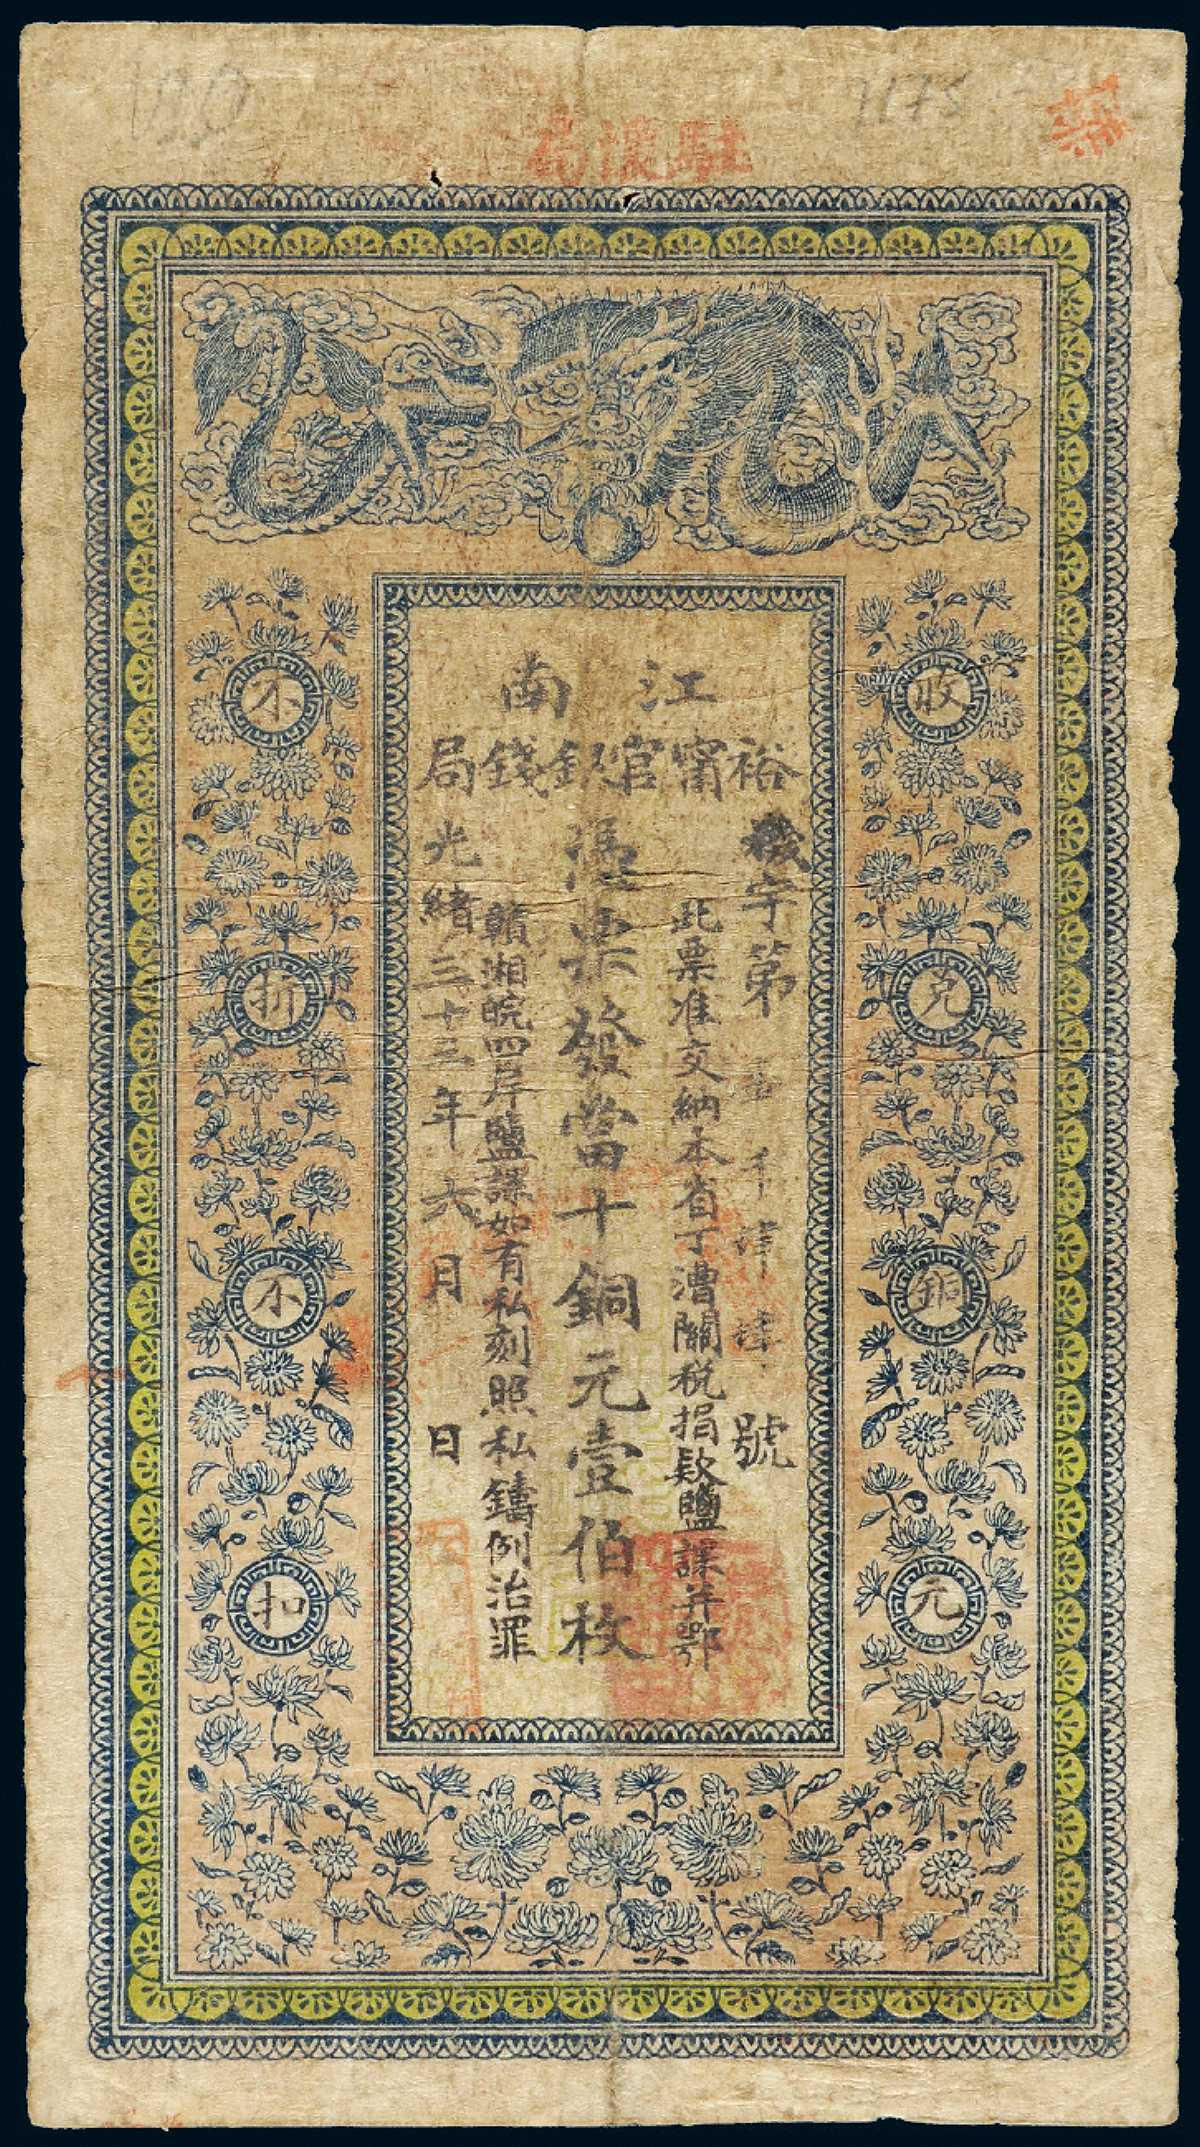 駐懷
江南
裕甯官銀錢局
字第 號
此票准交納本省丁漕關税捐款鹽課并鄂
憑票發當十銅元壹伯枚
贛湘皖四岸鹽課如有私刻照私鑄例治罪
光緒三十三年六月 日
收兌銅元
不折不扣
1175